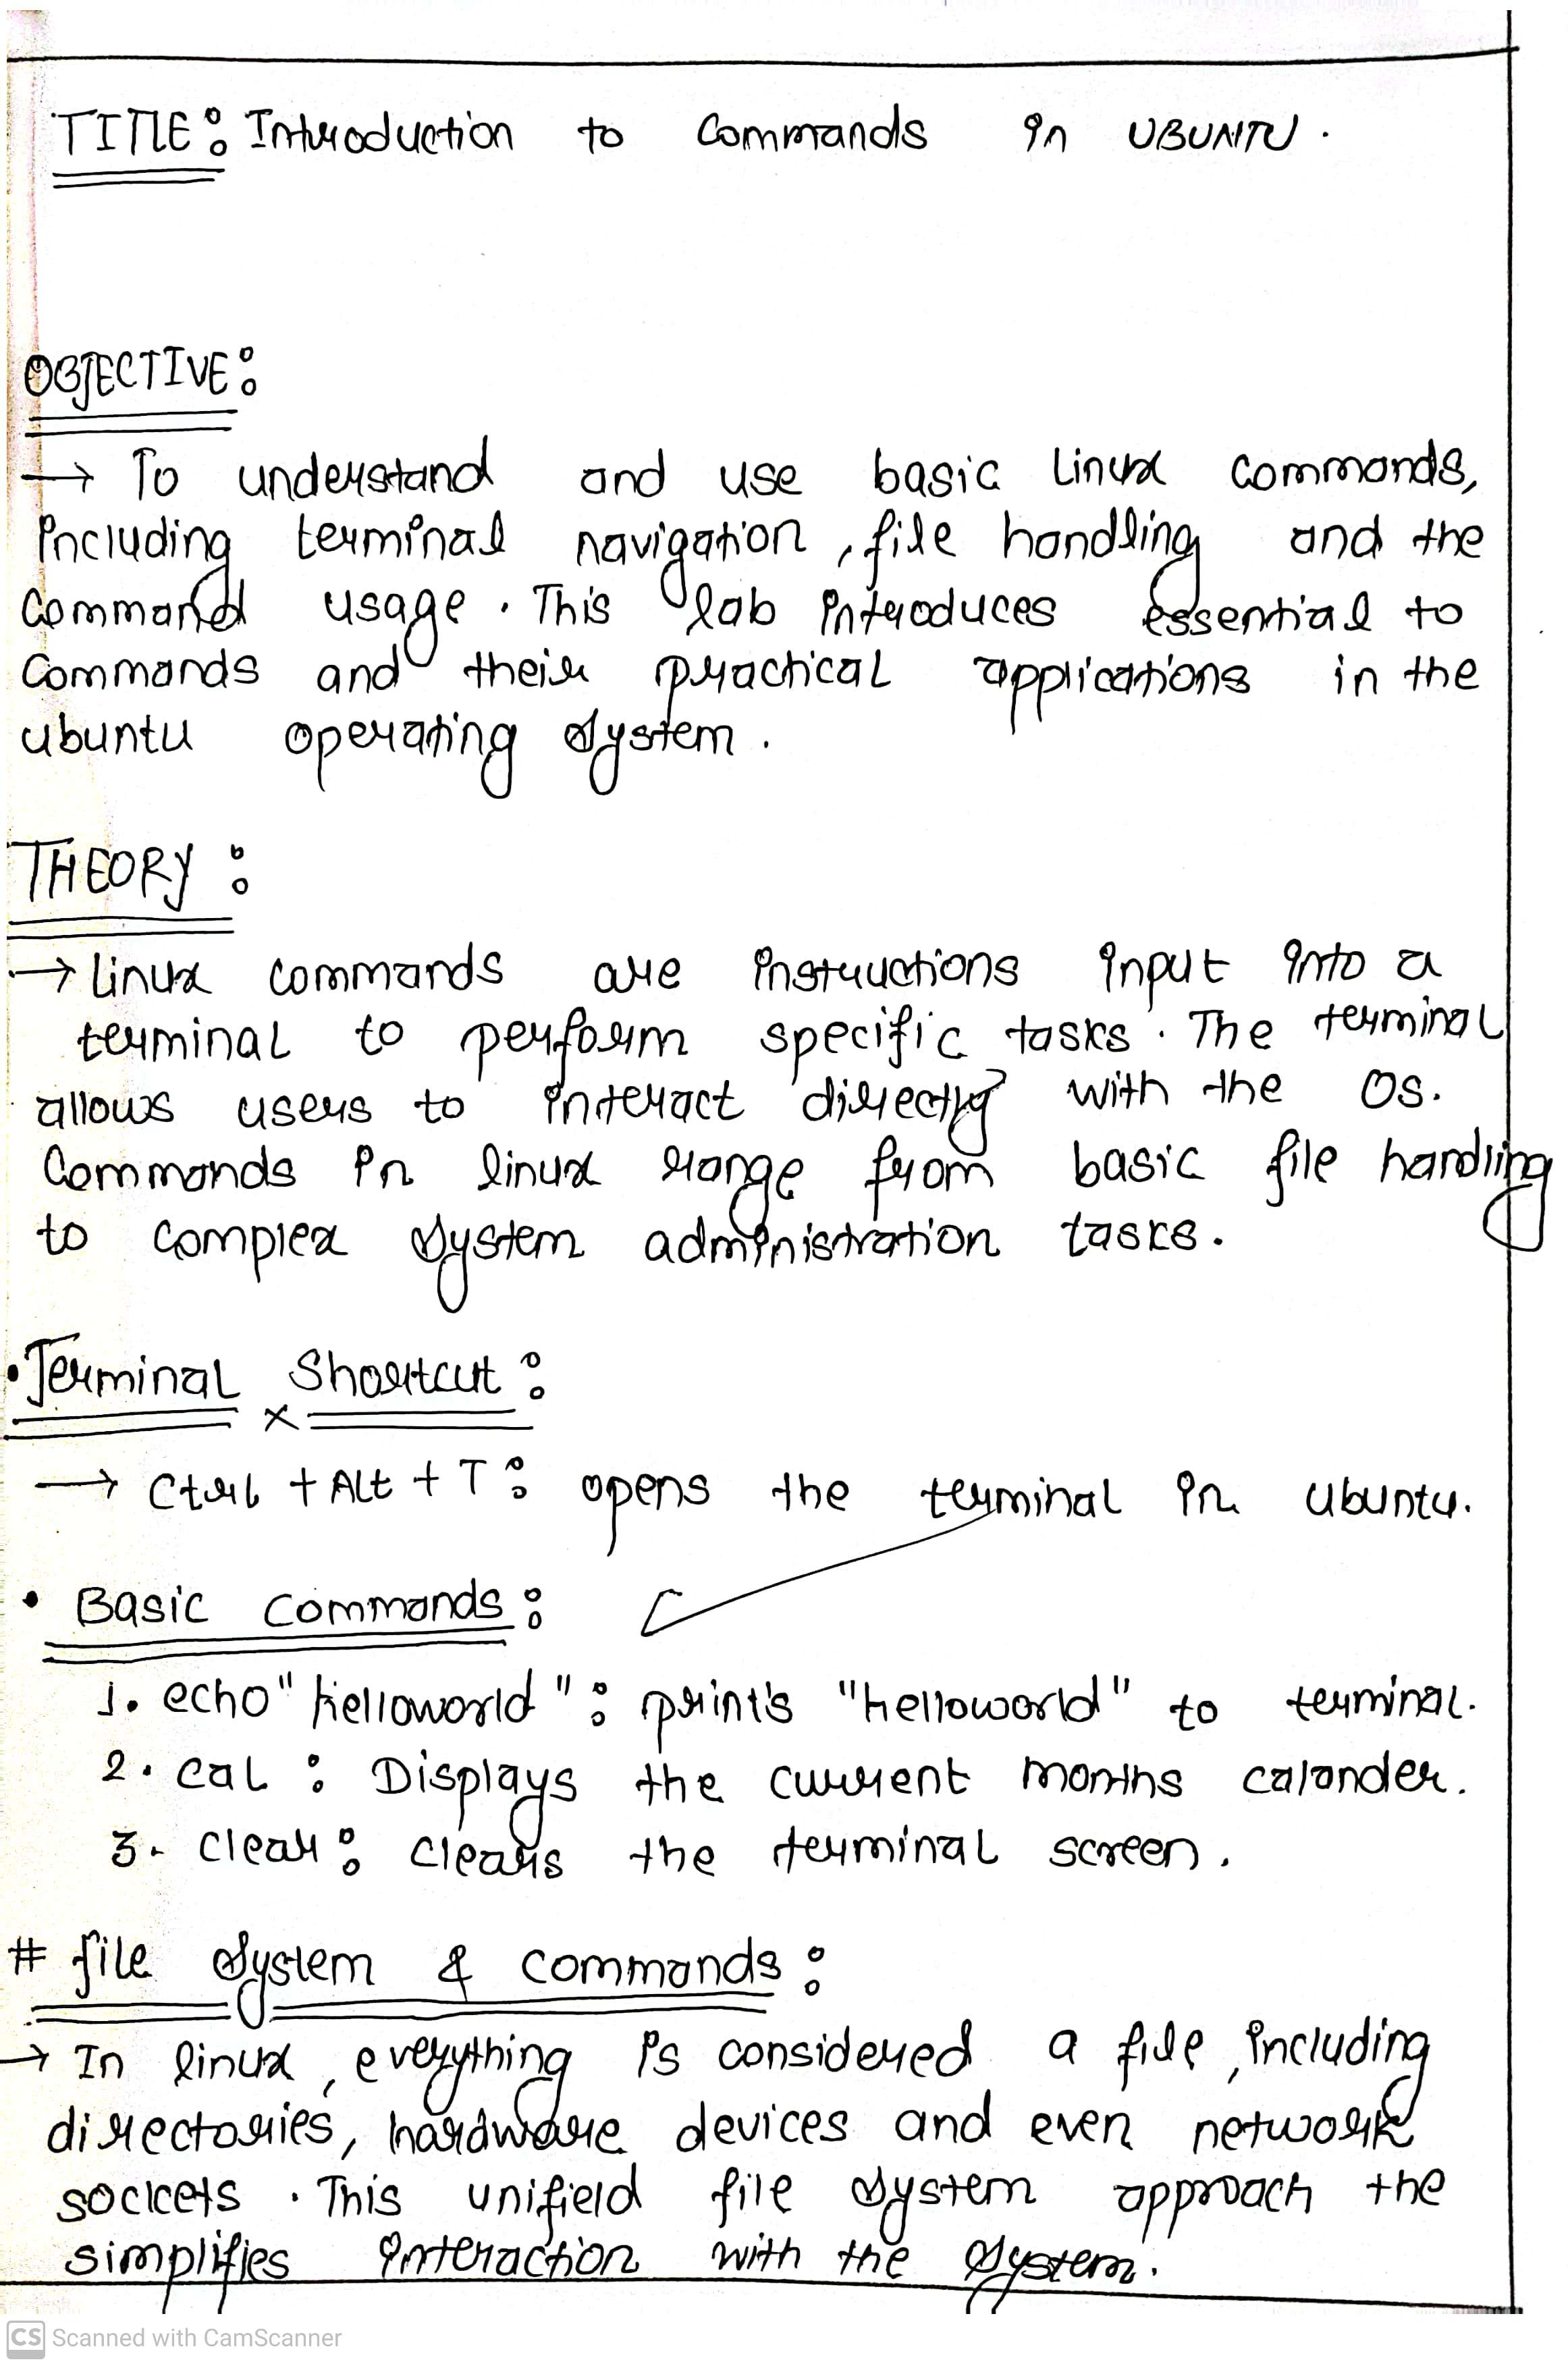 TITLE: Introduction to Commands in UBUNTU.
OBJECTIVE:
→ To understand and use basic Linux commands,
including terminal navigation, file handling and the
command usage. This lab introduces essential to
Commands and their practical applications in the
ubuntu operating system.
THEORY:
→ linux commands are instructions input into a
terminal to perform specific tasks. The terminal
allows users to interact directly with the OS.
Commands in linux range from basic file handling
to complex system administration tasks.
• Terminal Shortcut:
→ Ctrl + Alt + T: opens the terminal in ubuntu.
• Basic commands:
1. echo "helloworld": print's "helloworld" to terminal.
2. cal: Displays the current months calander.
3. clear: clears the terminal screen.
# file system & commands:
→ In linux, everything is considered a file, including
directories, hardware devices and even network
sockets. This unifield file system approach the
simplifies interaction with the system.
CS Scanned with CamScanner